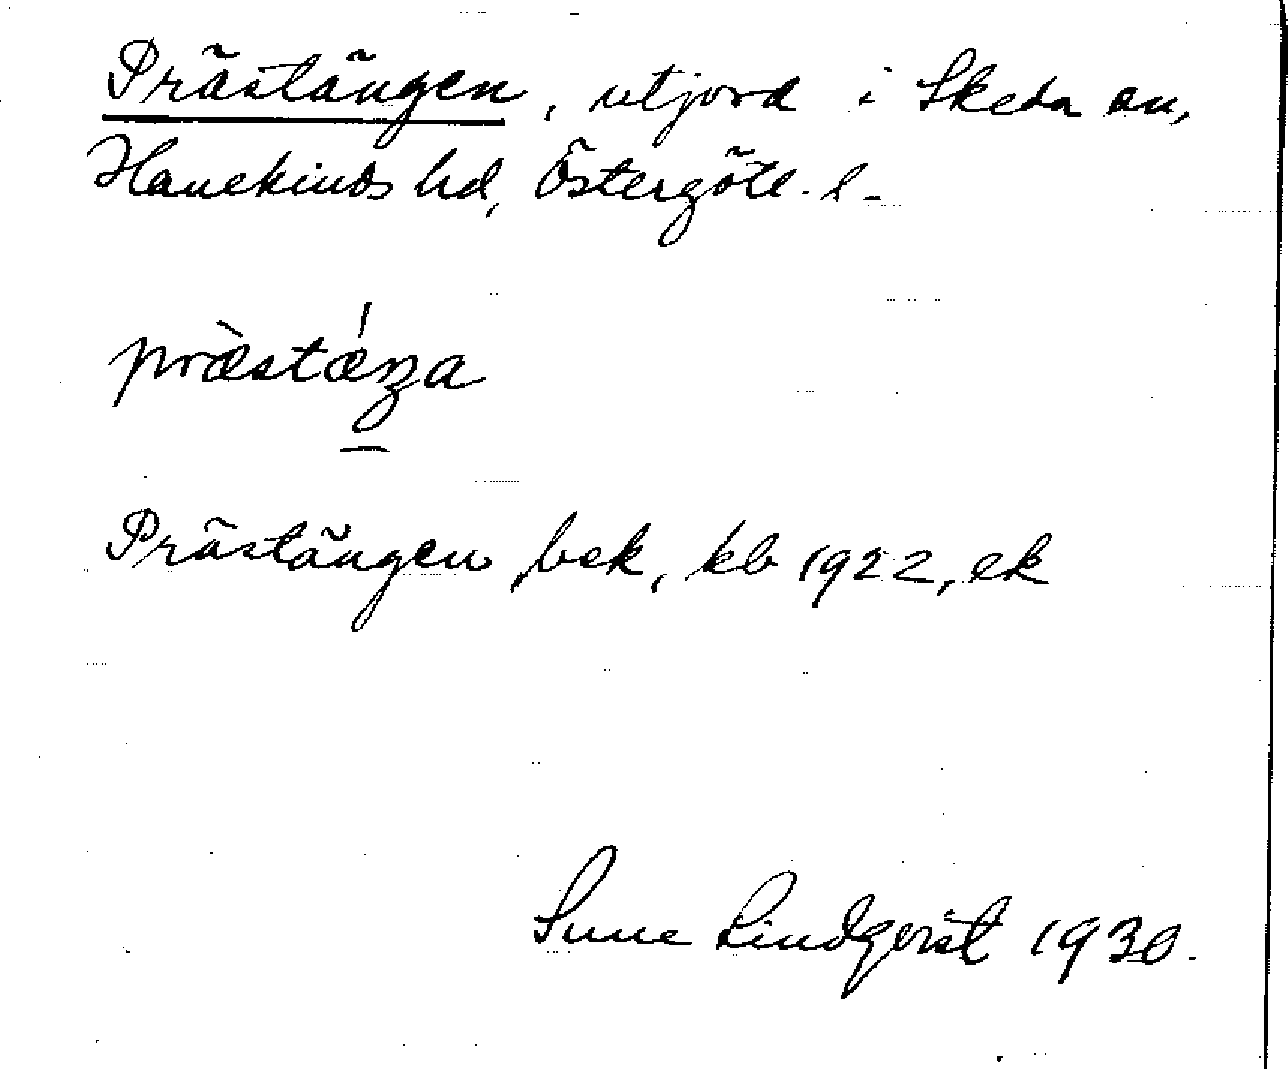 Prästängen, utjord i Skeda sn,
Hanekinds hd, Östergötl. l.
præ̀stǽŋa
Prästängen, bek, kb 1922, ek
Sune Lindqvist 1930.